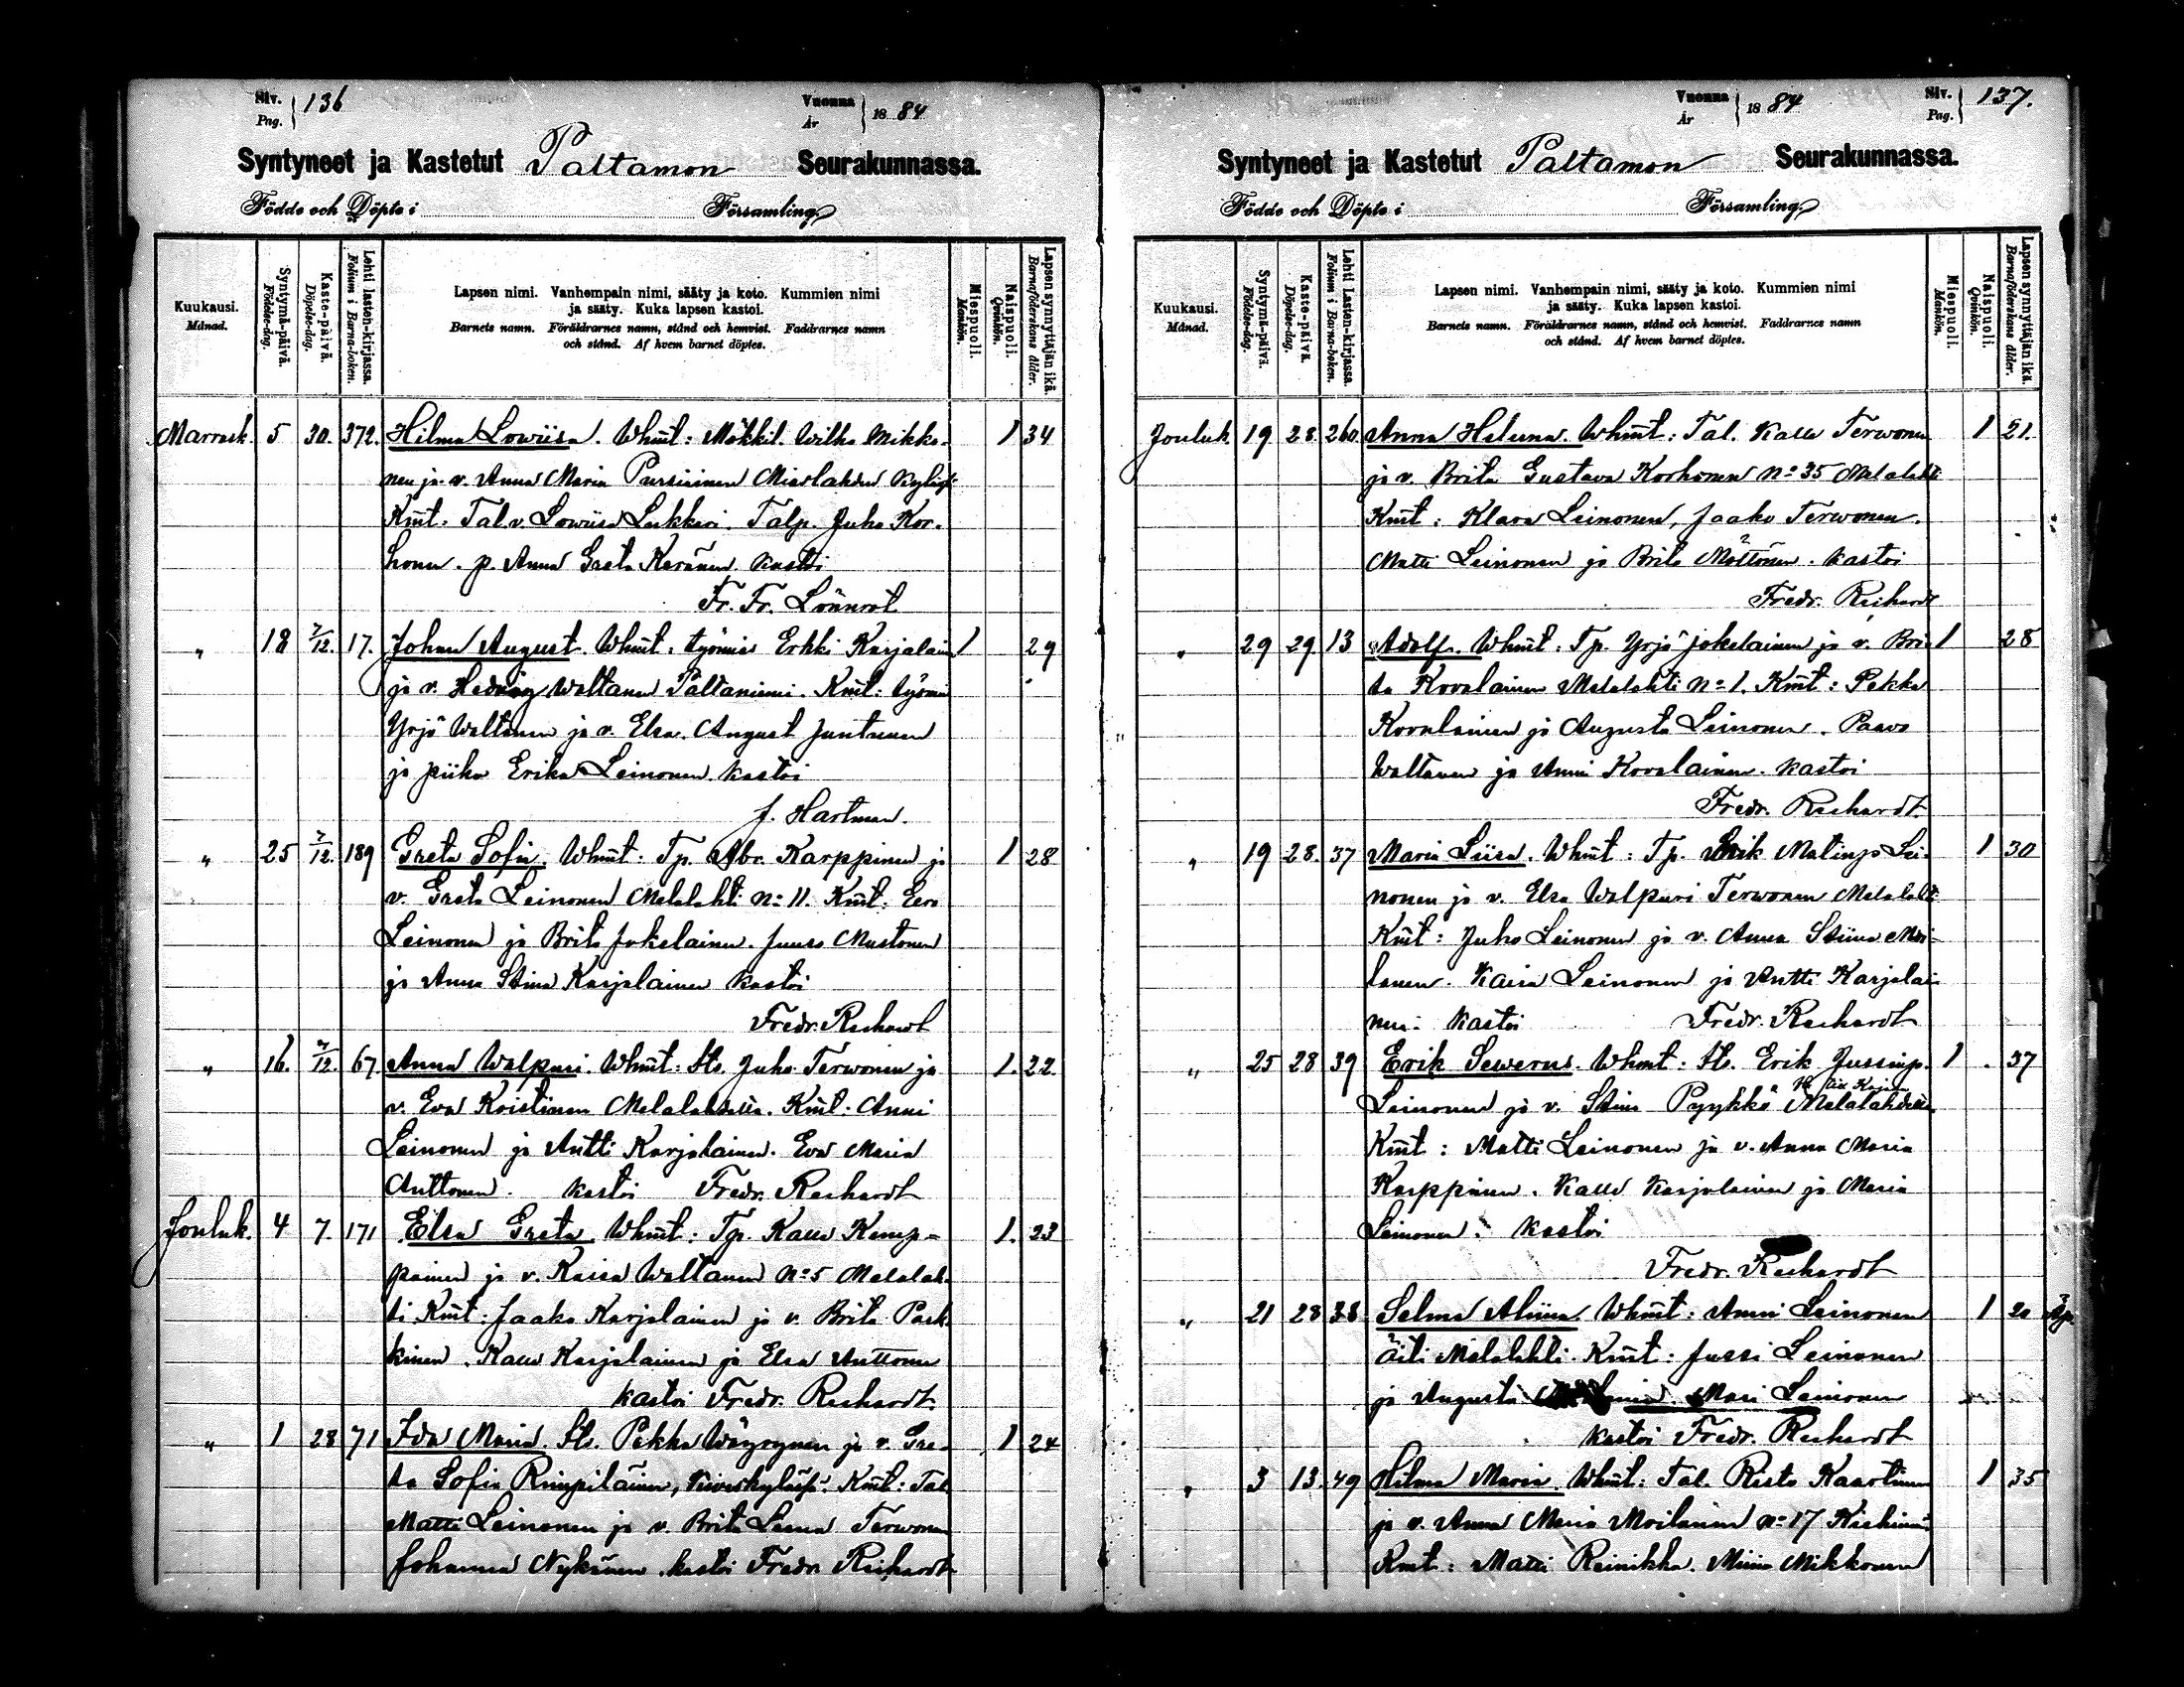 Siv. Pag. 136
Vuonna År 1884
Syntyneet ja Kastetut Paltamon Seurakunnassa.
Födde och Döpte i Församling.
Kuukausi. Månad.
Syntymä-päivä. Födelse-dag.
Kaste-päivä. Döpelse-dag.
Lehti lasten-kirjassa. Folium i Barna-boken.
Lapsen nimi. Vanhempain nimi, sääty ja koto. Kummien nimi
ja sääty. Kuka lapsen kastoi.
Barnets namn. Föräldrarnes namn, stånd och hemvist. Faddrarnes namn
och stånd. Af hvem barnet döptes.
Miespuoli. Mankön.
Naispuoli. Qvinkön.
Lapsen synnyttäjän ikä. Barnaföderskans ålder.
Marrask. 5 30. 372. Hilma Lowiisa. Whmt: Mökkil. Wilho Mikko- 1 34
nen ja v. Anna Maria Pursiainen Mieslahden
Kmt. Tal. v. Lowiisa Lukkari. Talp. Juho Kor-
honen. p. Anna Greta Keränen. Kastoi
Fr. Fr. Lönnrot
" 18 7/12. 17. Johan August. Whmt. työmies Erkki Karjalain 1 29
ja v. Hedwig Waltanen Paltaniemi. Kmt: työmi
Yrjö Waltanen ja v. Elsa. August Juntunen
ja piika Erika Leinonen. Kastoi
J. Hartman.
" 25 7/12. 189 Greta Sofia. Whmt: Tp. Abr. Karppinen ja 1 28
v. Greta Leinonen Melalahti No 11. Kmt: Eero
Leinonen ja Brita Jokelainen. Juuso Mustonen
ja Anna Stina Karjalainen kastoi
Fredr. Rechardt
" 16. 7/12. 67. Anna Walpuri. Whmt: Its. Juho Terwonen ja 1. 22.
v. Eva Kristiina Melalahdella. Kmt: Anni
Leinonen ja Antti Karjalainen. Eva Maria
Anttonen. kastoi Fredr. Rechardt
Jouluk. 4 7. 171 Elsa Greta. Whmt: Tp. Kalle Kemp- 1. 23
painen ja v. Kaisa Waltanen No 5 Melalah-
ti Kmt: Jaako Karjalainen ja v. Brita Park-
kinen. Kalle Karjalainen ja Elsa Anttonen
kastoi Fredr. Rechardt.
" 1 28 71 Ida Maria. Its. Pekka Wäyrynen ja v. Gre- 1 24
ta Sofia Rimpiläinen, Kmt: Tal.
Matti Leinonen ja v. Brita Leena Terwonen
Johanna Nykänen. kastoi Fredr. Rechardt
Vuonna År 1884
Siv. Pag. 137.
Syntyneet ja Kastetut Paltamon Seurakunnassa.
Födde och Döpte i Församling.
Kuukausi. Månad.
Syntymä-päivä. Födelse-dag.
Kaste-päivä. Döpelse-dag.
Lehti Lasten-kirjassa. Folium i Barna-boken.
Lapsen nimi. Vanhempain nimi, sääty ja koto. Kummien nimi
ja sääty. Kuka lapsen kastoi.
Barnets namn. Föräldrarnes namn, stånd och hemvist. Faddrarnes namn
och stånd. Af hvem barnet döptes.
Miespuoli. Mankön.
Naispuoli. Qvinkön.
Lapsen synnyttäjän ikä. Barnaföderskans ålder.
Jouluk. 19 28. 260. Anna Helena. Whmt: Tal. Kalle Terwonen 1 21.
ja v. Brita Gustava Korhonen No 35 Melalahti
Kmt: Klara Leinonen, Jaako Terwonen.
Matti Leinonen ja Brita Möttönen. kastoi
Fredr. Rechardt
" 29 29 13 Adolf. Whmt: Tp. Yrjö Jokelainen ja v. Bri- 1 28
ta Kovalainen Melalahti No 1. Kmt: Pekka
Kovalainen ja Augusta Leinonen. Paavo
Waltanen ja Anni Kovalainen. kastoi
Fredr. Rechardt.
" 19 28. 37 Maria Liisa. Whmt: Tp. Erik Matinp. Lei- 1 30
nonen ja v. Elsa Walpuri Terwonen Melalahti
Kmt: Juho Leinonen ja v. Anna Stiina Moi-
lanen. Kaisa Leinonen ja Antti Karjalai-
nen. kastoi Fredr. Rechardt
" 25 28 39 Erik Sewerus. Whmt: Its. Erik Jussinp. 1 37
Leinonen ja v. Stina Pyykkö Melalahdella
Kmt: Matti Leinonen ja v. Anna Maria
Karppinen. Kalle Karjalainen ja Maria
Leinonen. kastoi
Fredr. Rechardt
" 21 28 38 Selma Aliina. Whmt: Anni Leinonen 1 20 Äp.
äiti Melalahti. Kmt: Jussi Leinonen
ja Augusta Mari Leinonen
kastoi Fredr. Rechardt
" 3 13. 49 Hilma Maria. Whmt: Tal. Risto Kaartinen 1 35
ja v. Anna Maria Moilanen No 17
Kmt: Matti Reinikka. Miina Mikkonen